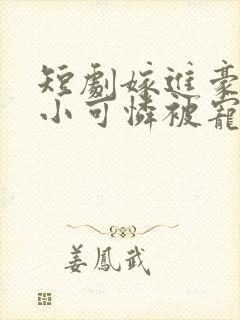 短劇嫁進豪
小可憐被寵
姜鳳武